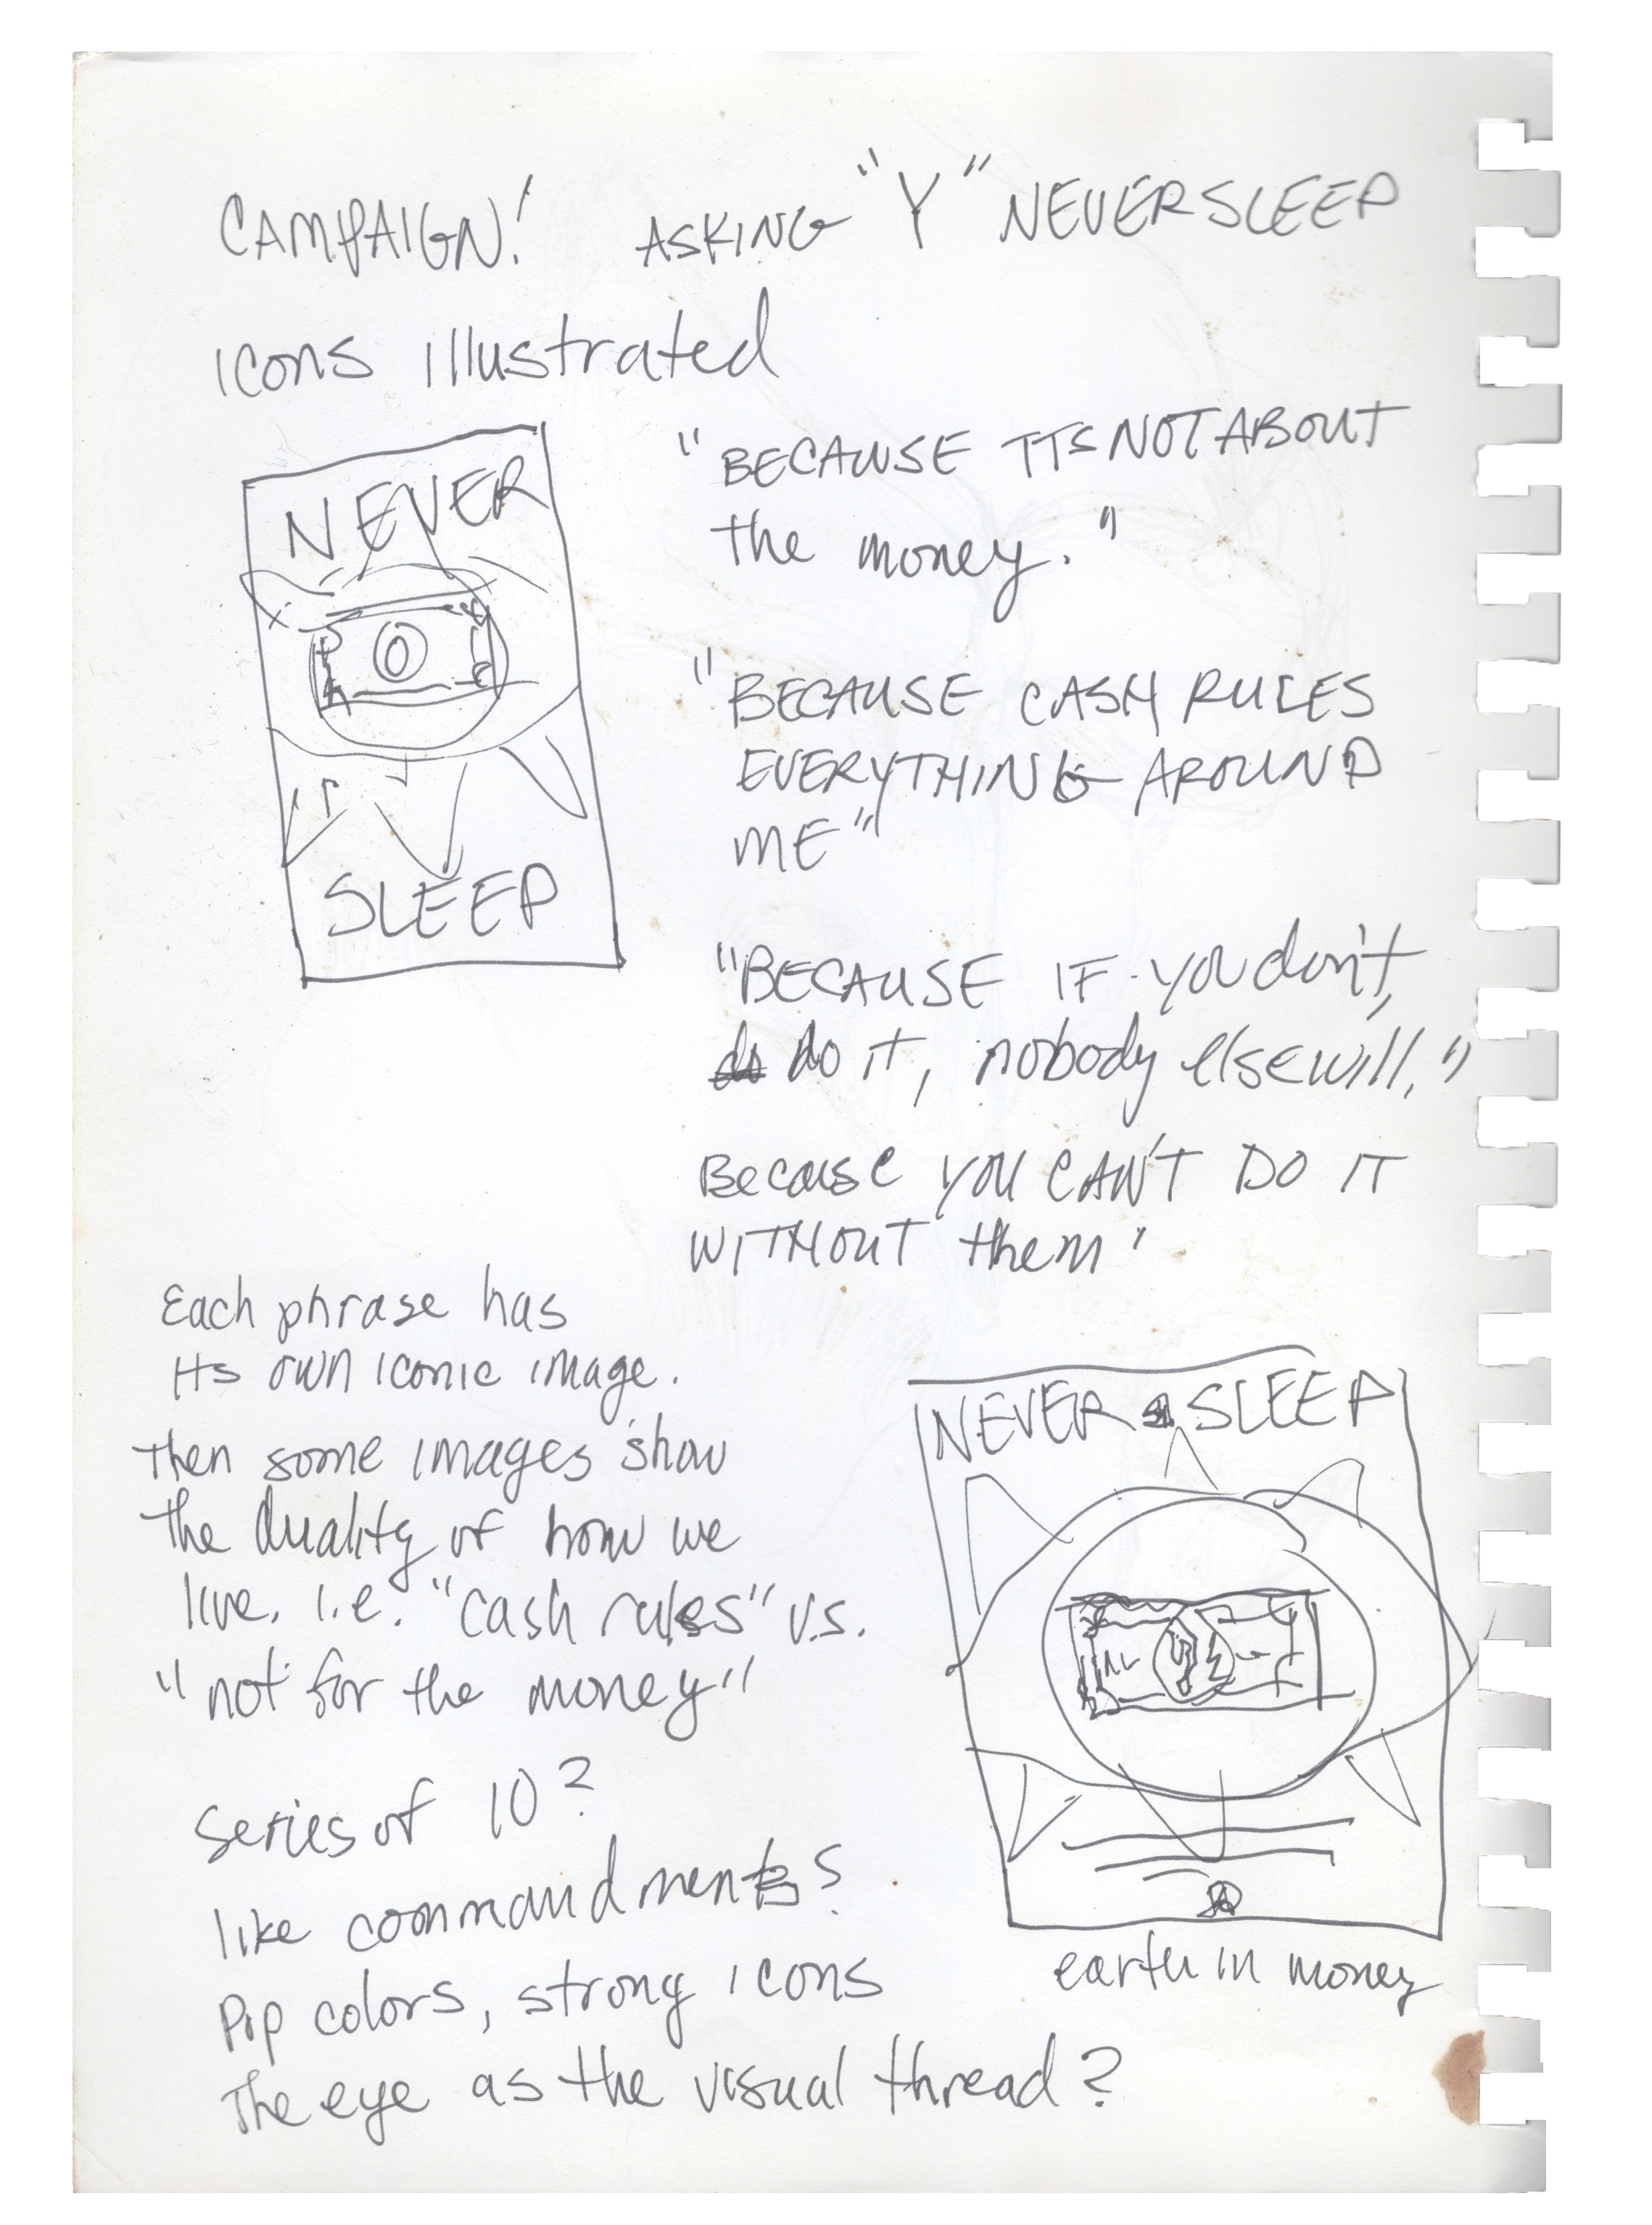 CAMPAIGN! ASKING "Y" NEVER SLEEP
icons illustrated
NEVER
SLEEP
"BECAUSE ITS NOT ABOUT
the money."
"BECAUSE CASH RULES
EVERYTHING AROUND
ME"
"BECAUSE IF YOU don't,
do do it, nobody else will."
Because YOU CAN'T DO IT
WITHOUT them"
Each phrase has
its own iconic image.
Then some images show
the duality of how we
live. i.e. "cash rules" v.s.
"not for the money"
Series of 10?
like commandments?
Pop colors, strong icons
The eye as the visual thread?
NEVER SLEEP
earth in money